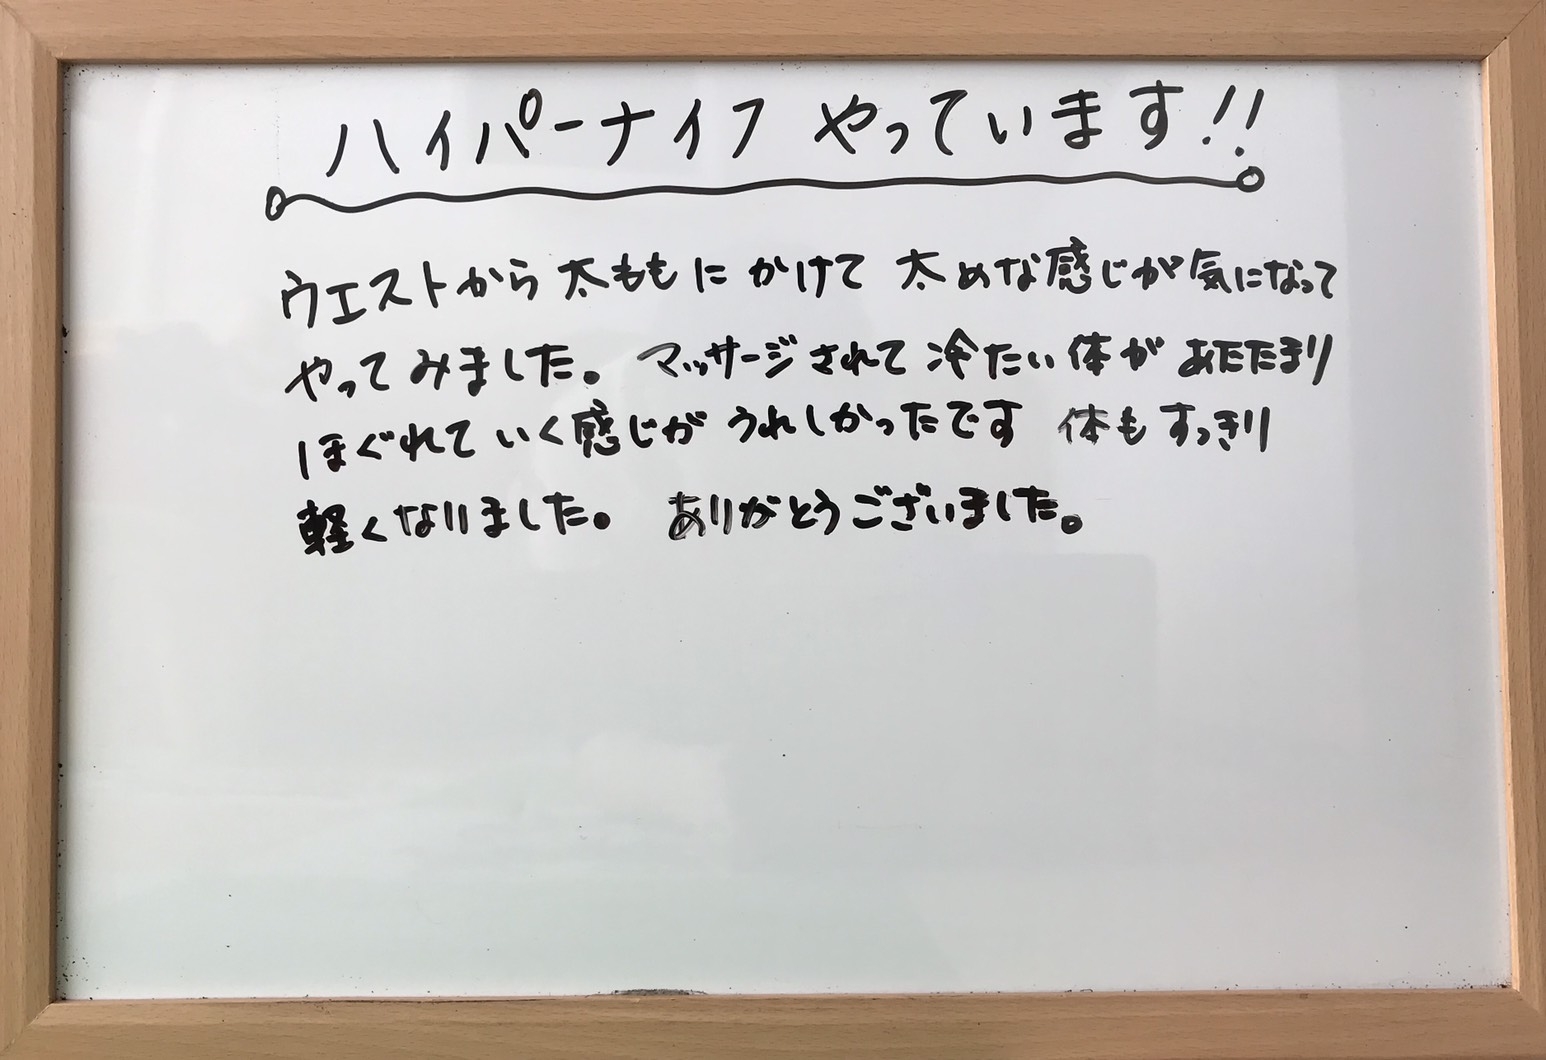 ハイパーナイフ やっています!!
ウエストから太ももにかけて 太めな感じが気になって
やってみました。 マッサージされて冷たい体があたたまり
ほぐれていく感じがうれしかったです 体もすっきり
軽くなりました。 ありがとうございました。